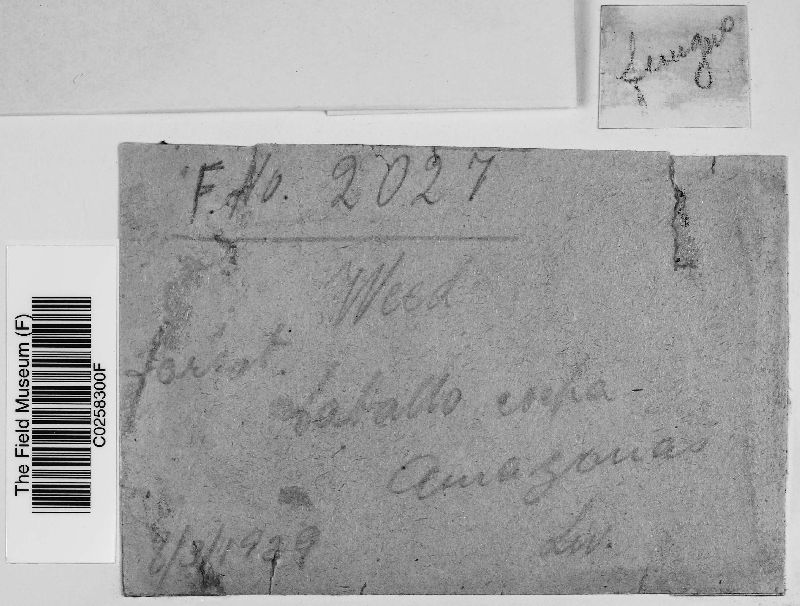 F. No. 2027
Weed
forest.
Caballo cocha
Amazonas
8/3/1929
The Field Museum (F)
C0258300F